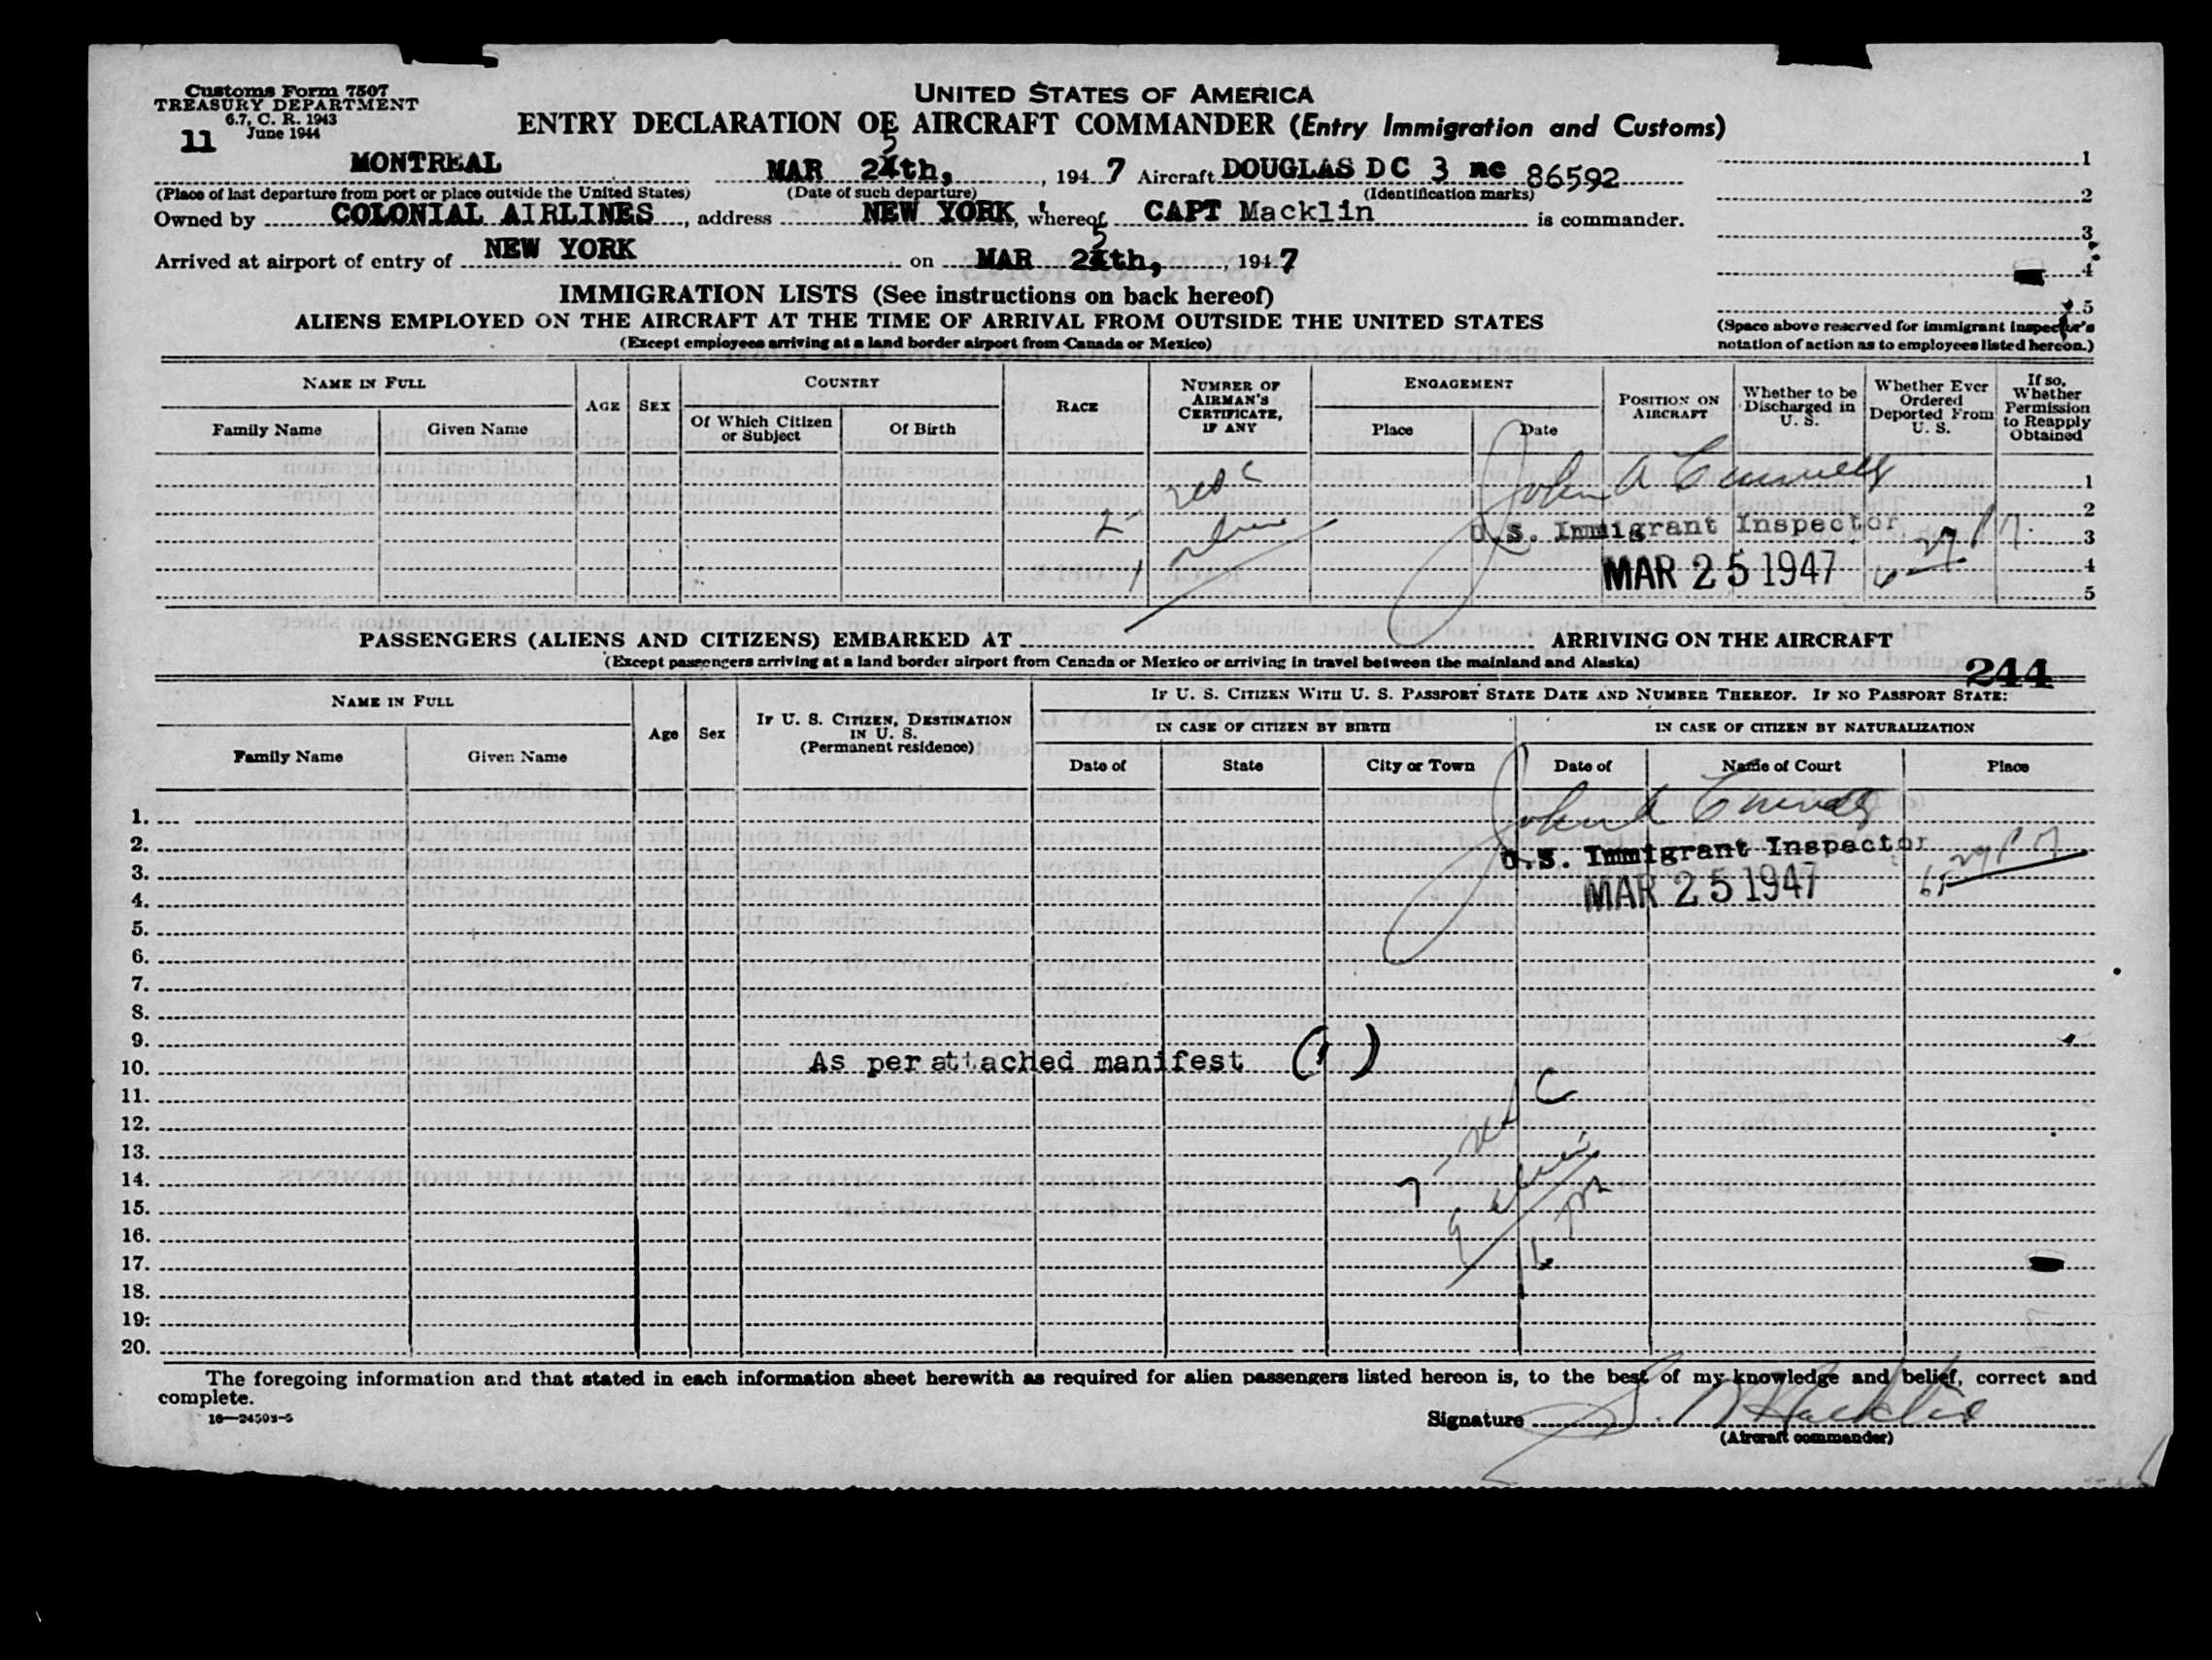 Customs Form 7507
TREASURY DEPARTMENT
6.7, C. R. 1943
June 1944
11
UNITED STATES OF AMERICA
ENTRY DECLARATION OF AIRCRAFT COMMANDER (Entry Immigration and Customs)
MONTREAL MAR 25th, 1947 Aircraft DOUGLAS DC 3 nc 86592
(Place of last departure from port or place outside the United States) (Date of such departure) (Identification marks)
Owned by COLONIAL AIRLINES, address NEW YORK, whereof CAPT Macklin is commander.
Arrived at airport of entry of NEW YORK on MAR 25th, 1947
1
2
3
4
5
(Space above reserved for immigrant inspector's
notation of action as to employees listed hereon.)
IMMIGRATION LISTS (See instructions on back hereof)
ALIENS EMPLOYED ON THE AIRCRAFT AT THE TIME OF ARRIVAL FROM OUTSIDE THE UNITED STATES
(Except employees arriving at a land border airport from Canada or Mexico)
NAME IN FULL
Family Name Given Name
AGE SEX
COUNTRY
Of Which Citizen or Subject Of Birth
RACE
NUMBER OF AIRMAN'S CERTIFICATE, IF ANY
ENGAGEMENT
Place Date
POSITION ON AIRCRAFT
Whether to be Discharged in U. S.
Whether Ever Ordered Deported From U. S.
If so, Whether Permission to Reapply Obtained
John A
1
2
U.S. Immigrant Inspector
3
MAR 25 1947
4
5
PASSENGERS (ALIENS AND CITIZENS) EMBARKED AT ARRIVING ON THE AIRCRAFT
(Except passengers arriving at a land border airport from Canada or Mexico or arriving in travel between the mainland and Alaska)
244
NAME IN FULL
Family Name Given Name
Age Sex
IF U. S. CITIZEN, DESTINATION
IN U. S.
(Permanent residence)
IF U. S. CITIZEN WITH U. S. PASSPORT STATE DATE AND NUMBER THEREOF. IF NO PASSPORT STATE:
IN CASE OF CITIZEN BY BIRTH IN CASE OF CITIZEN BY NATURALIZATION
Date of State City or Town Date of Name of Court Place
1.
2. U.S. Immigrant Inspector
3.
4. MAR 25 1947
5.
6.
7.
8.
9.
10. As per attached manifest (1)
11.
12.
13.
14.
15.
16.
17.
18.
19.
20.
The foregoing information and that stated in each information sheet herewith as required for alien passengers listed hereon is, to the best of my knowledge and belief, correct and
complete.
16—24503-5
Signature S. Macklin
(Aircraft commander)